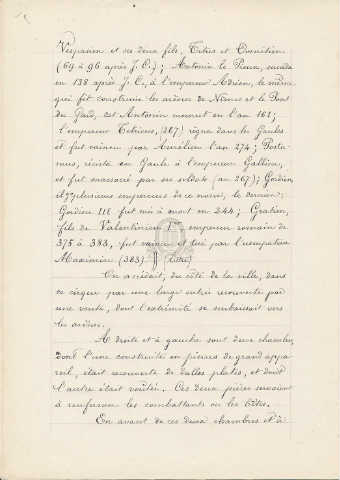 Vespasien et ses deux fils, Titus et Domitien
(69 à 96 après J. C.) ; Antonin le Pieux, succéda
en 138 après J. C., à l'empereur Adrien, le même
qui fit construire les arènes de Nîmes et le Pont
du Gard, cet Antonin mourut en l'an 161 ;
l'empereur Tetricus, (267) règne dans les Gaules
et fut vaincu par Aurélien l'an 274 ; Postu-
mus, résista en Gaule à l'empereur Gallien,
et fut massacré par ses soldats (an 267) ; Gordien,
il y a plusieurs empereurs de ce nom, le dernier,
Gordien III fut mis à mort en 244 ; Gratien,
fils de Valentinien 1er empereur romain de
375 à 383, fut vaincu et tué par l'usurpateur
Maximien (383)
On accédait, du côté de la ville, dans
ce cirque par une large entrée recouverte par
une voûte, dont l'extrémité se embusait vers
les arènes.
A droite et à gauche sont deux chambres,
dont l'une construite en pierres de grand appa-
reil, était recouverte de dalles plates, et dont
l'autre était voûtée. Ces deux pièces servaient
à renfermer les combattants ou les bêtes.
En avant de ces deux chambres et à